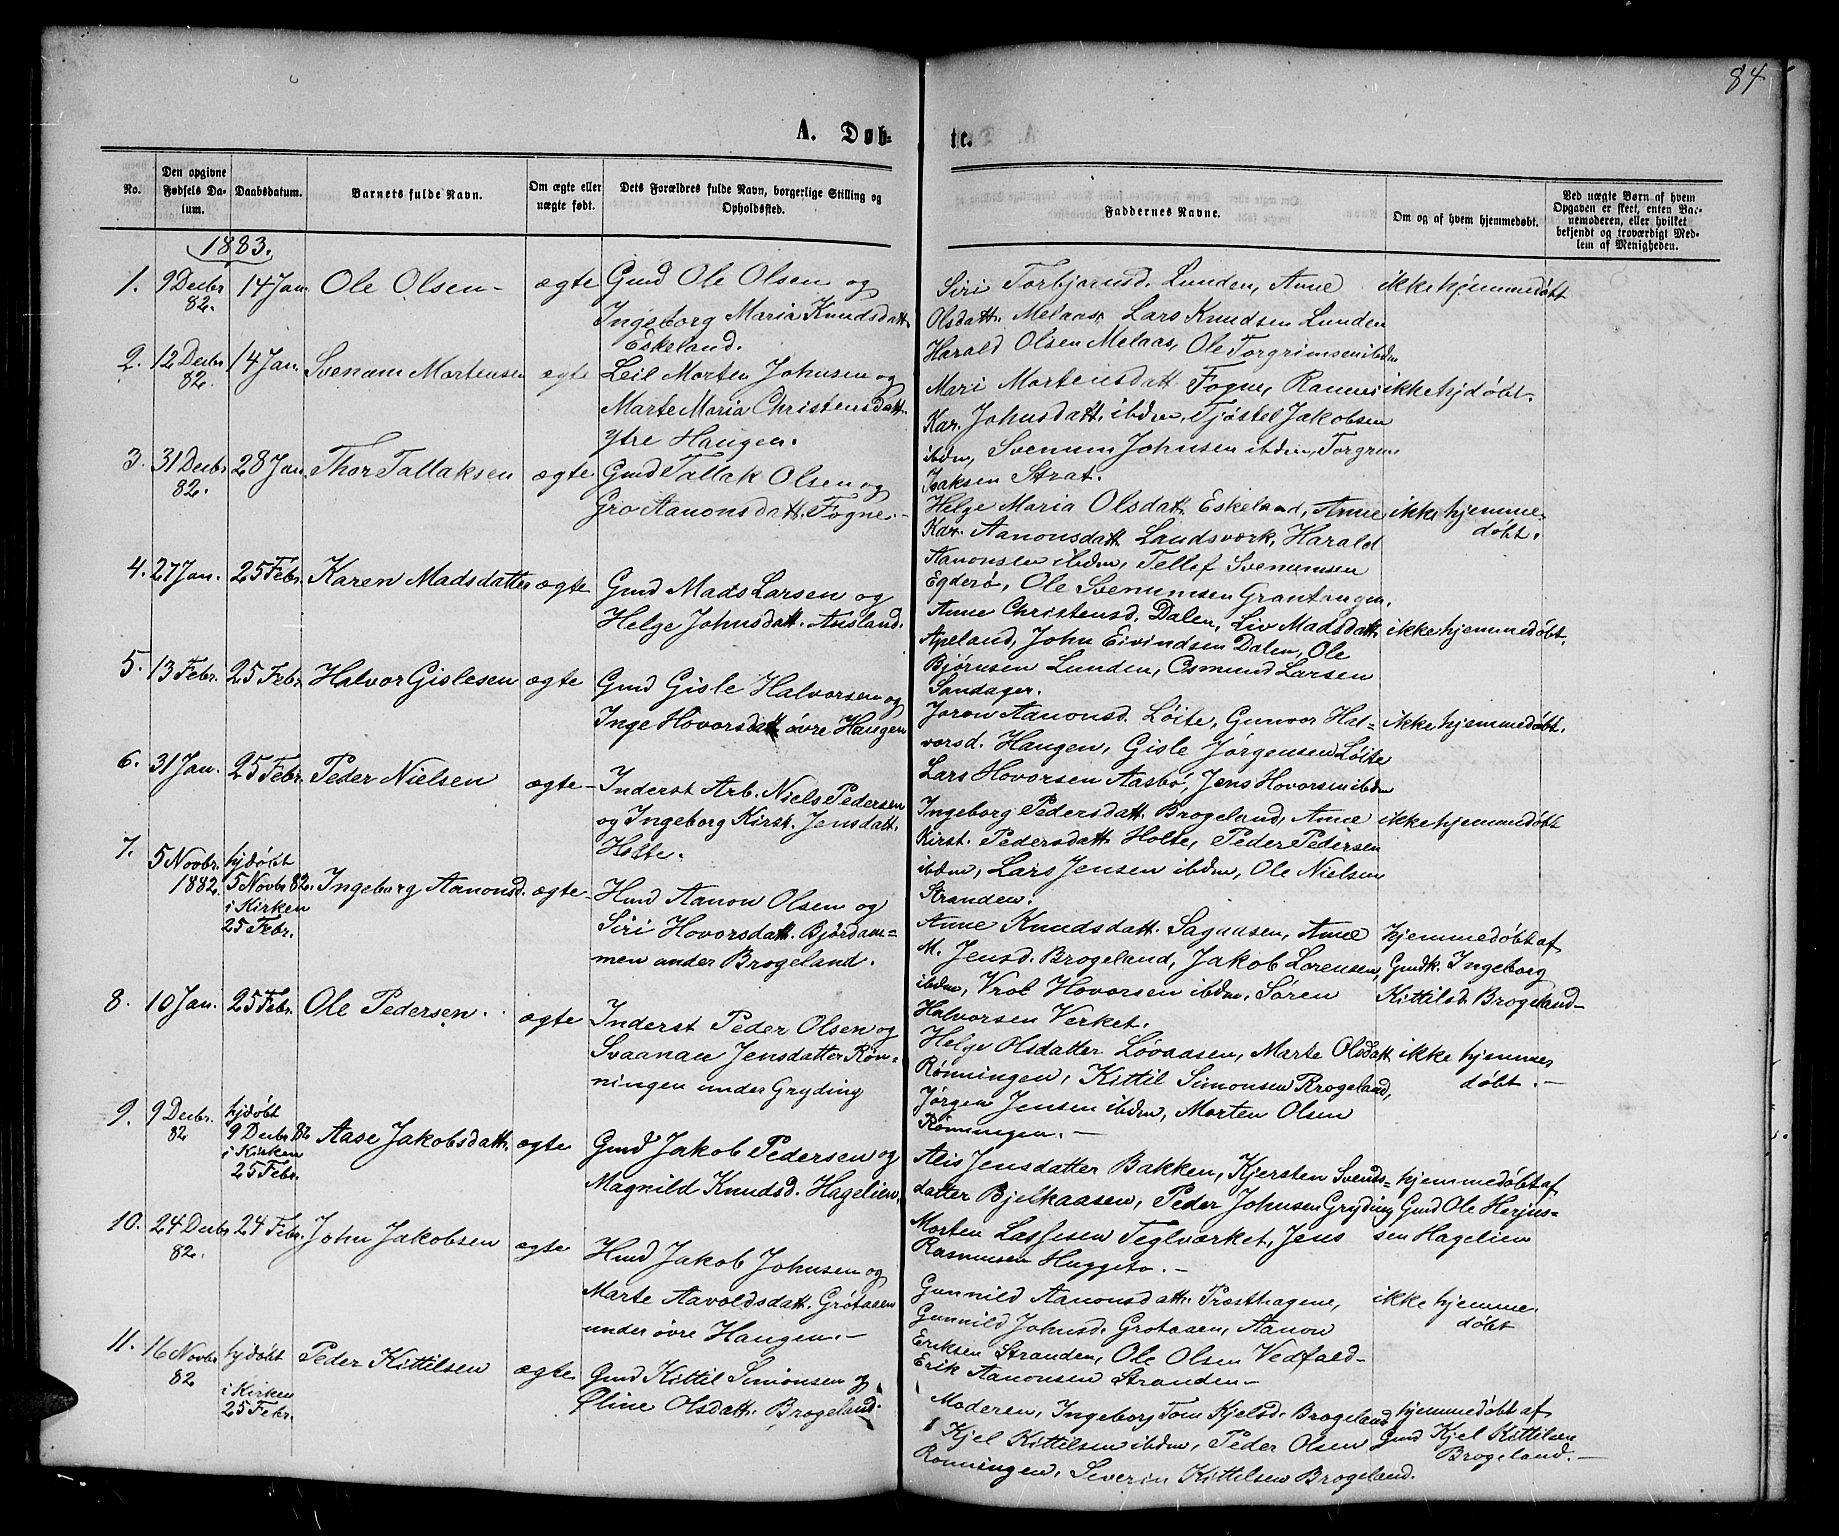 84
A. Døb-
te.
No.
Den opgivne Fødsels Da-tum.
Daabsdatum.
Barnets fulde Navn.
Om ægte eller uægte født.
Dets Forældres fulde Navn, borgerlige Stilling og Opholdssted.
Faddernes Navne.
Om og af hvem hjemmedøbt.
Ved uægte Børn af hvem Opgaven er skeet, enten Bar-nemoderen, eller hvilket bekjendt og troværdigt Med-lem af Menigheden.
1883.
1. 9 Decbr 82. 14 Jan. Ole Olsen - ægte Gmd Ole Olsen og
Ingeborg Maria Knudsdatt.
Eskeland.
Siri Torbjørnsd. Lunden, Anne
Olsdatt. Melaas, Lars Knudsen Lunden
Harald Olsen Melaas, Ole Torgrimsen ibdm
ikke hjemmedøbt
2. 12 Decbr 82. 14 Jan. Svenum Mortensen ægte Leil Morten Johnsen og
Marte Maria Christensdatt.
Ytre Haugen.
Mari Mortensdatt. Fogne,
Kar. Johnsdatt. ibdm, Tjøstel Jakobsen
ibdm, Svenum Johnsen ibdm, Torgrim
Isaksen Strat.
ikke hjdøbt.
3. 31 Decbr 82. 28 Jan. Thor Tallaksen ægte Gmd Tallak Olsen og
Gro Aanonsdatt. Fogne. -
Helge Maria Olsdatt. Eskeland, Anne
Kar. Aanonsdatt. Landsværk, Harald
Aanonsen ibdm, Tellef Svenumsen
Egderø, Ole Svenumsen Grantangen.
ikke hjemme-
døbt.
4. 27 Jan. 25 Febr. Karen Madsdatter ægte Gmd Mads Larsen og
Helge Johnsdatt. Ausland.
Anne Christensd. Dalen, Liv Madsdatt.
Apeland, John Eivindsen Dalen, Ole
Bjørnsen Lunden, Osmund Larsen
Sandager.
ikke hjemmedøbt.
5. 13 Febr. 25 Febr. Halvor Gislesen ægte Gmd Gisle Halvorsen og
Inge Hovorsdatt. øvre Haugen
Joron Aanonsd. Løite, Gunvor Hal-
vorsd. Haugen, Gisle Jørgensen Løite
Lars Hovorsen Aasbø, Jens Hovorsen ibdm
ikke hjemmedøbt.
6. 31 Jan. 25 Febr. Peder Nielsen ægte - Inderst Arb. Niels Pedersen
og Ingeborg Kirst. Jensdatt.
Holte.
Ingeborg Pedersdatt. Brogeland, Anne
Kirst. Pedersdatt. Holte, Peder Pedersen
ibdm, Lars Jensen ibdm, Ole Nielsen
Stranden.
ikke hjemmedøbt
7. 5 Novbr. 1882. hjdøbt 5 Novbr 82. i Kirken 25 Febr. Ingeborg Aanonsd. ægte - Hmd Aanon Olsen og
Siri Hovorsdatt. Bjørdam-
men under Brogeland.
Anne Knudsdatt. Sagaasen, Anne
M. Jensd. Brogeland, Jakob Lorensen,
ibdm, Vrol Hovorsen ibdm, Søren
Halvorsen Verket.
hjemmedøbt af
Gmdk. Ingeborg
Kittilsd. Brogeland -
8. 10 Jan. 25 Febr. Ole Pedersen. ægte Inderst Peder Olsen og
Svaanau Jensdatter Røn-
ningen under Gryding
Helge Olsdatter Løvaasen, Marte Olsdatt
Rønningen, Kittil Simonsen Brogeland,
Jørgen Jensen ibdm, Morten Olsen
Rønningen. -
ikke hjemme-
døbt. -
9. 9 Decbr. 82 hjdøbt 9 Decbr 82 i Kirken 25 Febr. Aase Jakobsdatt. ægte Gmd Jakob Pedersen og
Magnild Knudsd. Hagelien.
Alis Jensdatter Bakken, Kjersten Svends-
datter Bjelkaasen, Peder Johnsen Gryding
Morten Lassesen Teglværket, Jens
Rasmusen Huggeto. -
hjemmedøbt af
Gmd Ole Herjus-
sen Hagelien
10. 24 Decbr 82. 24 Febr. John Jakobsen ægte Hmd Jakob Johnsen og
Marte Aavoldsdatt. Grøtaaen
under øvre Haugen. -
Gunnild Aanonsdatt. Præsthagene,
Gunnild Johnsd. Grotaaen, Aanon
Eriksen Stranden, Ole Olsen Vedfald -
Erik Aanonsen Stranden -
ikke hjemme
døbt
11. 16 Novbr 82 hjdøbt i Kirken 25 Febr. Peder Kittilsen ægte Gmd Kittil Simonsen og
Øline Olsdatt. Brogeland.
Moderen, Ingeborg Tom. Kjelsd. Brogeland
Kjel Kittilsen ibdm, Peder Olsen
Rønningen, Severin Kittilsen Brogeland.
hjemmedøbt af
Gmd Kjel Kittilsen
Brogeland. -